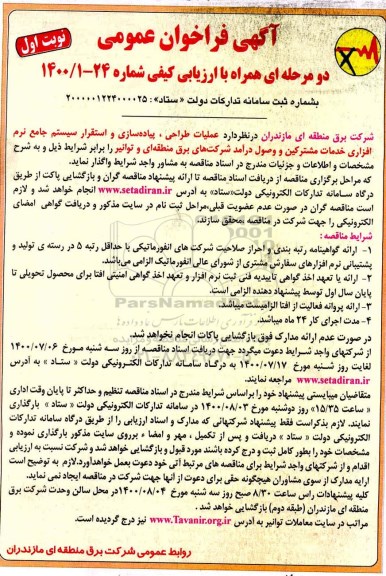 آگهی فراخوان عمومی
نوبت اول
دو مرحله ای همراه با ارزیابی کیفی شماره ۲۴-۱۴۰۰/۱
بشماره ثبت سامانه تدارکات دولت «ستاد»: ۲۰۰۰۰۰۱۲۲۴۰۰۰۰۲۵
شرکت برق منطقه ای مازندران درنظردارد عملیات طراحی ، پیاده‌سازی و استقرار سیستم جامع نرم
افزاری خدمات مشترکین و وصول درآمد شرکت‌های برق منطقه‌ای و توانیر را برابر شرایط ذیل و به شرح
مشخصات و اطلاعات و جزئیات مندرج در اسناد مناقصه به مشاور واجد شرایط واگذار نماید.
که مراحل برگزاری مناقصه از دریافت اسناد مناقصه تا ارائه پیشنهاد مناقصه گران و بازگشایی پاکت از طریق
درگاه سامانه تدارکات الکترونیکی دولت«ستاد» به آدرس www.setadiran.ir انجام خواهد شد و لازم
است مناقصه گران در صورت عدم عضویت قبلی،مراحل ثبت نام در سایت مذکور و دریافت گواهی امضای
الکترونیکی را جهت شرکت در مناقصه ،محقق سازند.
شرایط مناقصه :
۱- ارائه گواهینامه رتبه بندی و احراز صلاحیت شرکت های انفورماتیکی با حداقل رتبه ۵ در رسته ی تولید و
پشتیبانی نرم افزارهای سفارش مشتری از شورای عالی انفورماتیک الزامی می‌باشد.
۲- ارائه یا تعهد اخذ گواهی تأییدیه فنی ثبت نرم افزار و تعهد اخذ گواهی امنیتی افتا برای محصول تحویلی تا
پایان سال اول توسط پیشنهاد دهنده الزامی است.
۳- ارائه پروانه فعالیت از افتا الزامیست میباشد.
۴- مدت اجرای کار ۲۴ ماه میباشد.
در صورت عدم ارائه مدارک فوق بازگشایی پاکات انجام نخواهد شد.
از شرکتهای واجد شرایط دعوت میگردد جهت دریافت اسناد مناقصه از روز سه شنبه مورخ ۱۴۰۰/۰۷/۰۶
لغایت روز شنبه مورخ ۱۴۰۰/۰۷/۱۷ به درگاه سامانه تدارکات الکترونیکی دولت « ستاد » به آدرس
www.setadiran.ir مراجعه نمایند.
متقاضیان میبایستی پیشنهاد خود را براساس شرایط مندرج در اسناد مناقصه تنظیم و حداکثر تا پایان وقت اداری
« ساعت ۱۵/۳۵» روز دوشنبه مورخ ۱۴۰۰/۰۸/۰۳ در سامانه تدارکات الکترونیکی دولت « ستاد » بارگذاری
نمایند. لازم بذکراست فقط پیشنهاد شرکتهائی که مدارک و اسناد ارزیابی را از طریق درگاه سامانه تدارکات
الکترونیکی دولت « ستاد » دریافت و پس از تکمیل ، مهر و امضاء ، برروی سایت مذکور بارگذاری نموده و
مشخصات خود را بطور کامل ثبت و درج کرده باشند مورد قبول و بازگشایی خواهد شد و شرکت نسبت به ارزیابی
اقدام و از شرکتهای واجد شرایط برای مناقصه های مرتبط آتی خود دعوت بعمل خواهدآورد.لازم به توضیح است
ارایه مدارک از سوی مشاوران هیچگونه حقی برای دعوت از آنها جهت شرکت در مناقصه ایجاد نمی نماید.
کلیه پیشنهادات راس ساعت ۸/۳۰ صبح روز سه شنبه مورخ ۱۴۰۰/۰۸/۰۴در محل سالن وحدت شرکت برق
منطقه ای مازندران (طبقه دوم) بازگشایی خواهد شد .
مراتب در سایت معاملات توانیر به آدرس www.Tavanir.org.ir نیز درج گردیده است.
روابط عمومی شرکت برق منطقه ای مازندران